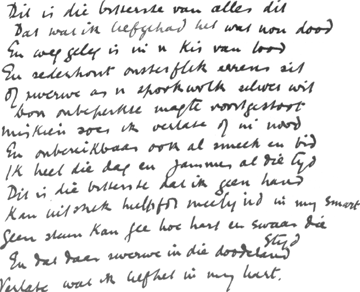 Dit is die bitterste van alles dit
Dat wat ik liefgehad het wat nou dood
En weg geleg is in 'n kis van lood
En sederhout onsterflik erens sit
Of swerwe as 'n spookwolk selwes wit
Door onbeperkte magte voortgestoot
Miskien soes ik verlate of in nood
En onbereikbaar ook al smeek en bid
Ik heel die dag en jammer al die tyd
Dit is die bitterste dat ik geen hand
Kan uitstrek help of meely in my smart
Geen stem kan gee hoe hart en swaar die
stryd
En dat daar swerwe in die doodeland
Verlate wat ik liefhet in my hart.